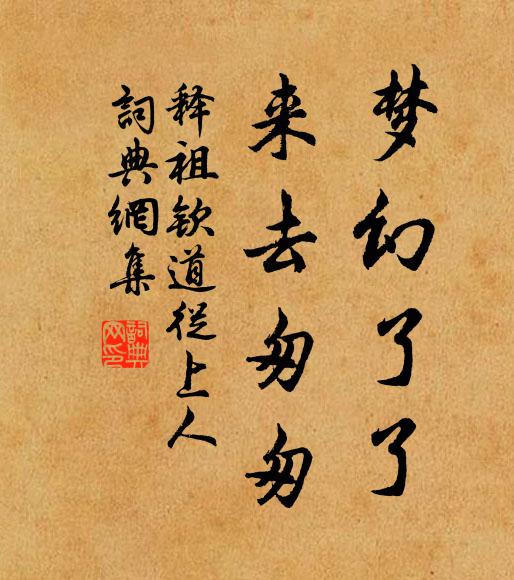 梦幻了了
来去匆匆
释祖钦道從上人
詞典網集
詞典网印